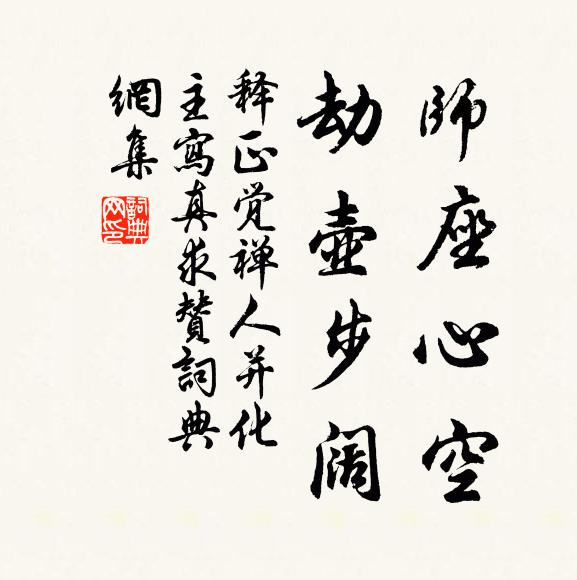 師座心空
劫壺步阔
释正觉禅人并化
主寫真求贊詞典
網集
詞典
网印